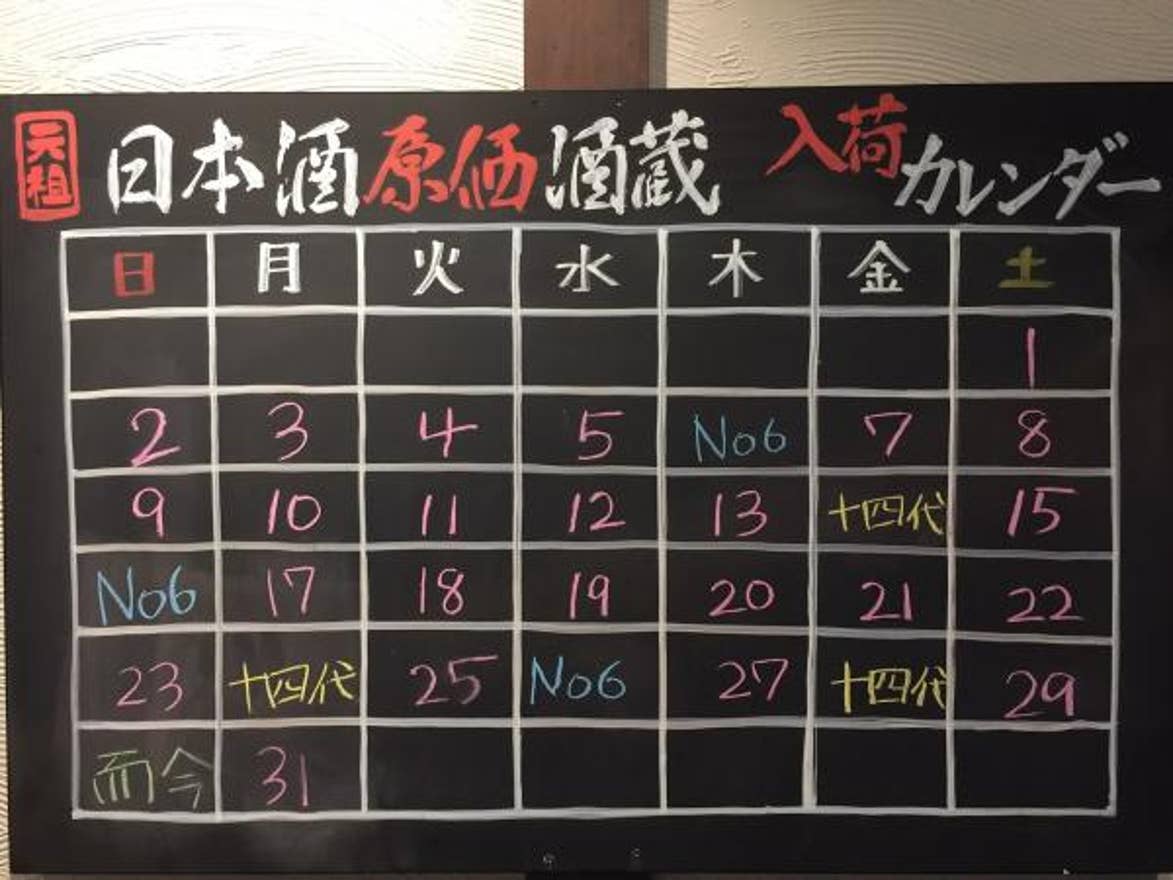 元祖 日本酒原価酒蔵 入荷カレンダー
日 月 火 水 木 金 土
1
2 3 4 5 No6 7 8
9 10 11 12 13 十四代 15
No6 17 18 19 20 21 22
23 十四代 25 No6 27 十四代 29
而今 31